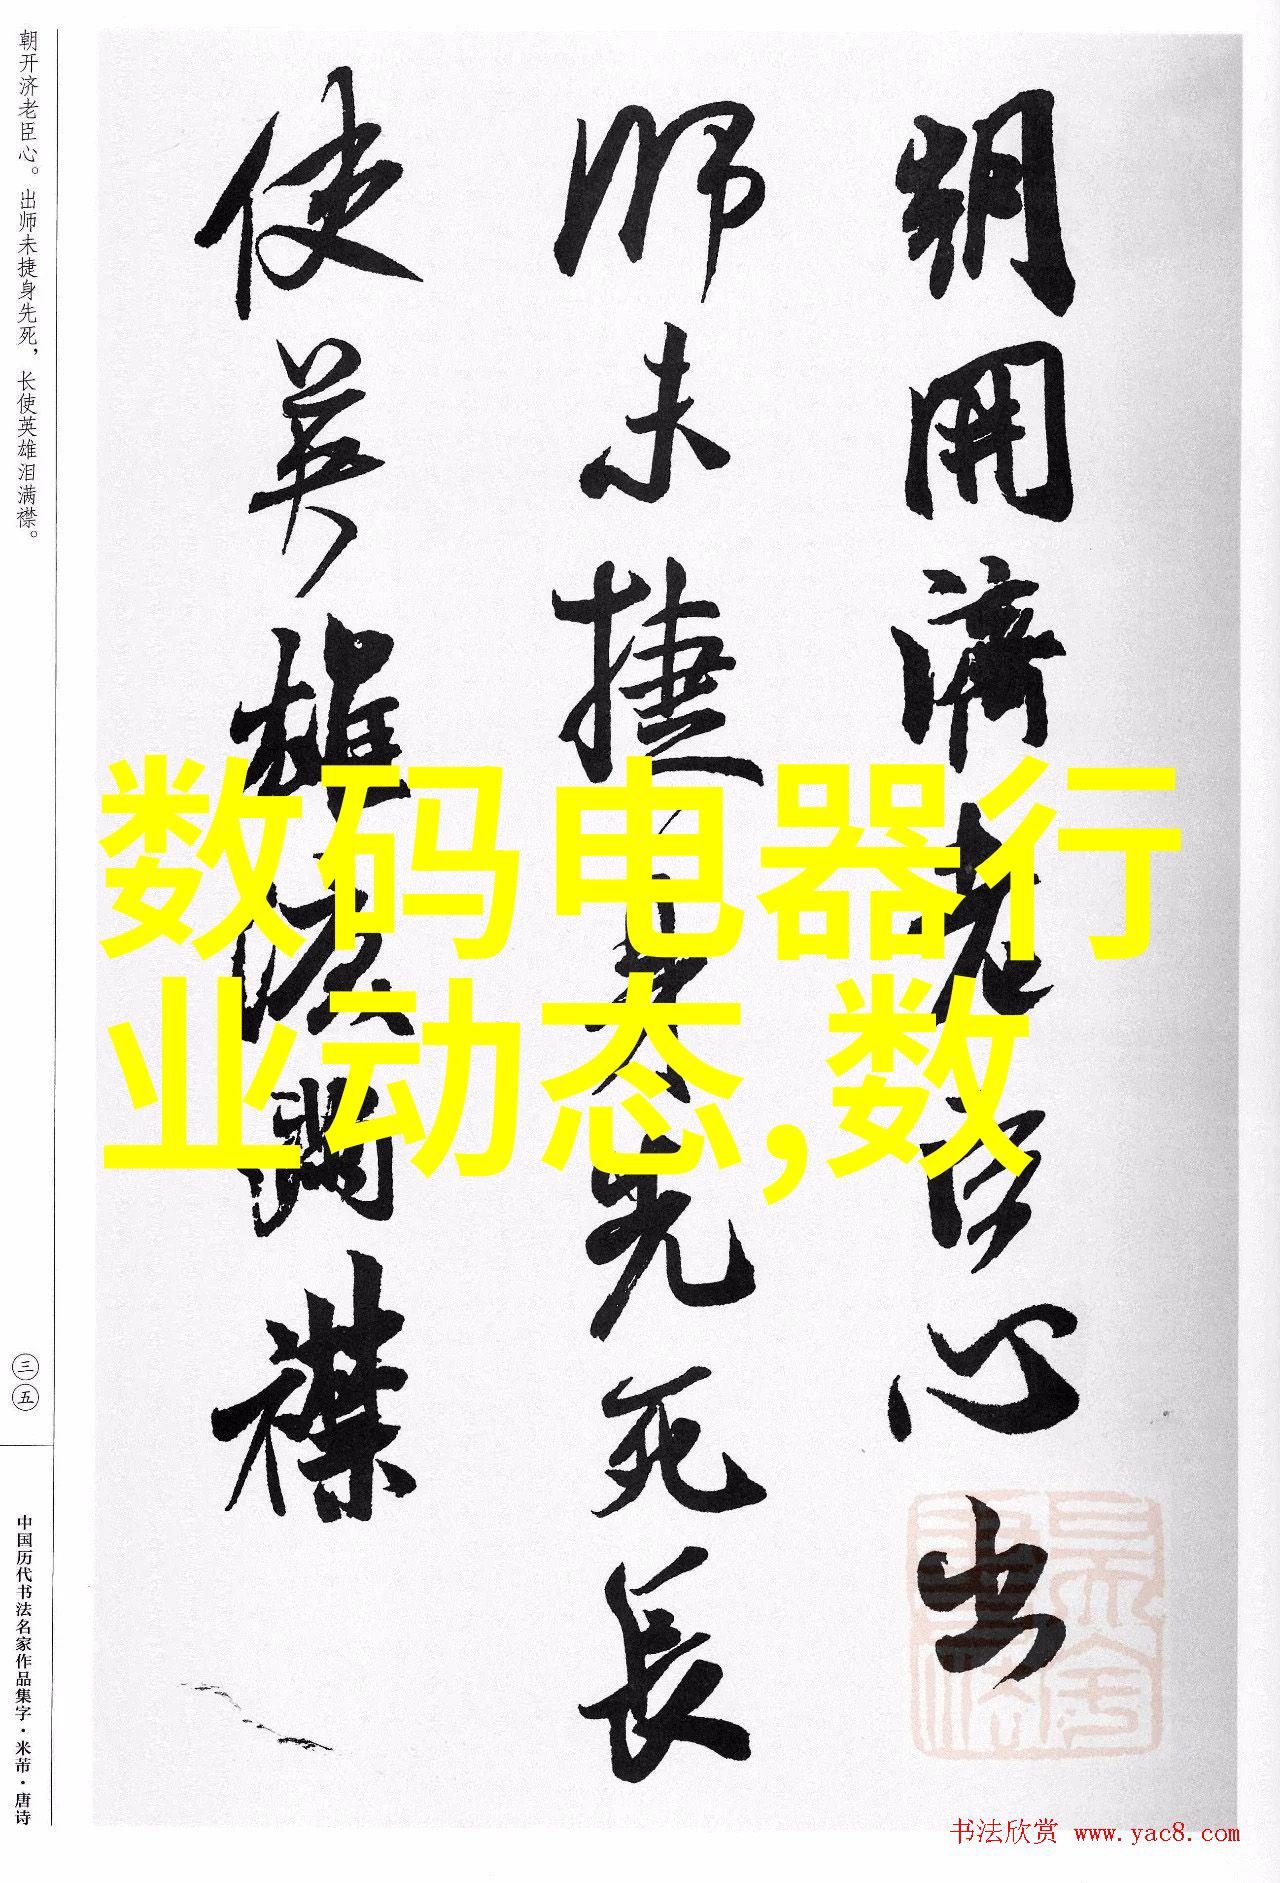 朝开济老臣心。出师未捷身先死，长使英雄泪满襟。
三五
中国历代书法名家作品集字·米芾·唐诗
朝開濟老臣心出
師未捷身先死長
使英雄淚滿襟
数码电器行
业动态,数
书法欣赏 www.yac8.com